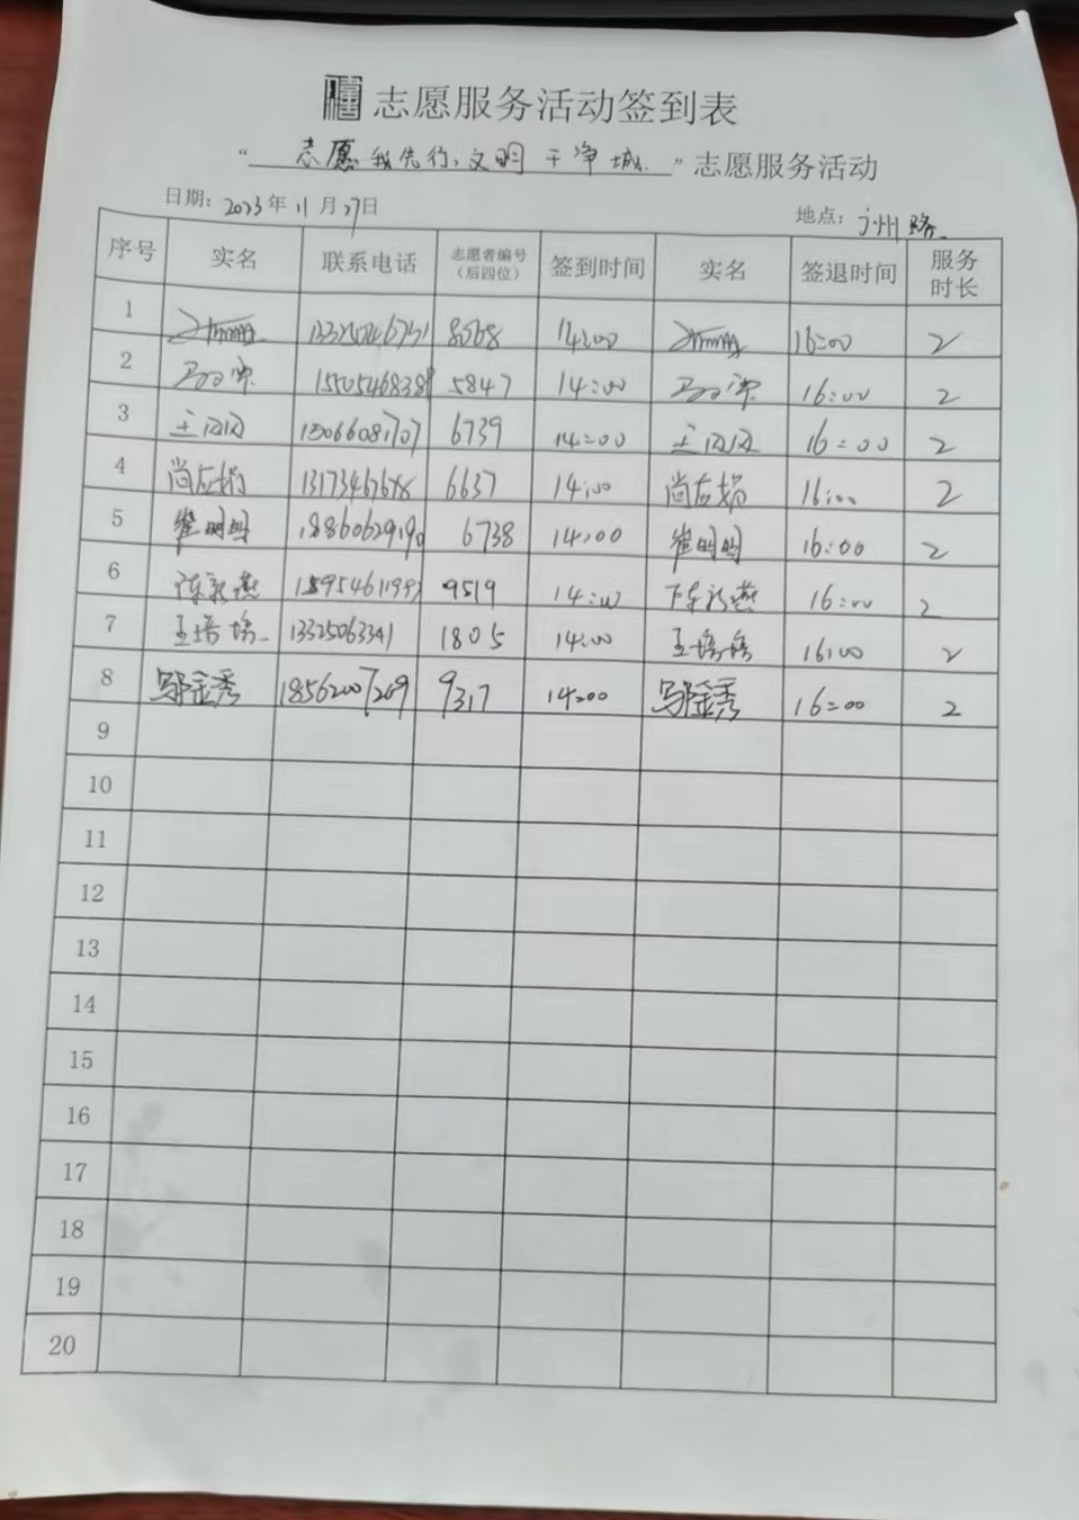 志愿服务活动签到表
“志愿我先行、文明干净城”志愿服务活动
日期：2023年11月27日 地点：广州路
序号 实名 联系电话 志愿者编号（后四位） 签到时间 实名 签退时间 服务时长
1 8068 14:00 16:00 2
2 5847 14:00 16:00 2
3 王闪闪 15066081707 6739 14:00 王闪闪 16:00 2
4 6637 14:00 16:00 2
5 崔明明 6738 14:00 崔明明 16:00 2
6 9519 14:00 16:00 2
7 王培培 1805 14:00 王培培 16:00 2
8 邬金秀 18562007269 9317 14:00 邬金秀 16:00 2
9
10
11
12
13
14
15
16
17
18
19
20